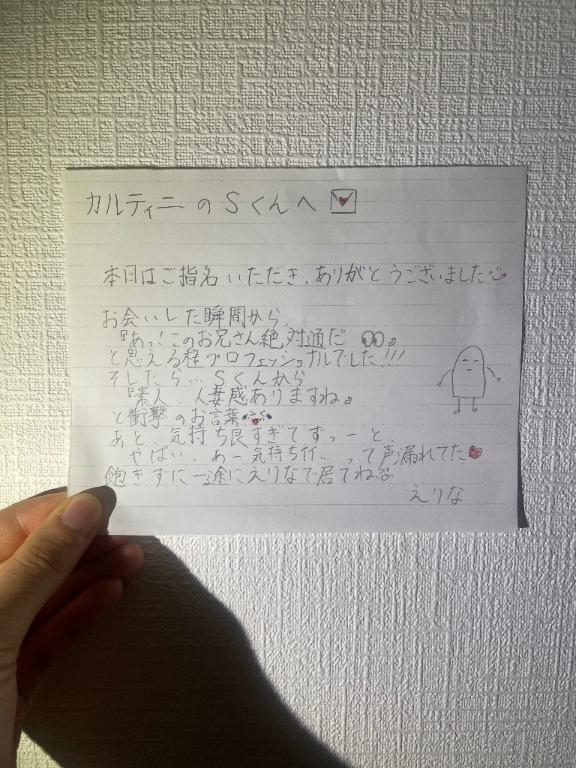 カルティニのSくんへ
本日はご指名いただき、ありがとうございました
お会いした瞬間から、
『あっ!このお兄さん絶対通だ 』
と思える程プロフェッショナルでした!!!
そしたら…Sくんから
『素人、人妻感ありますね』
と衝撃のお言葉
あと、気持ち良すぎてずっーと、
やばい、あー気持ち行…って声漏れてた
飽きずに一途にえりなで居てね
えりな